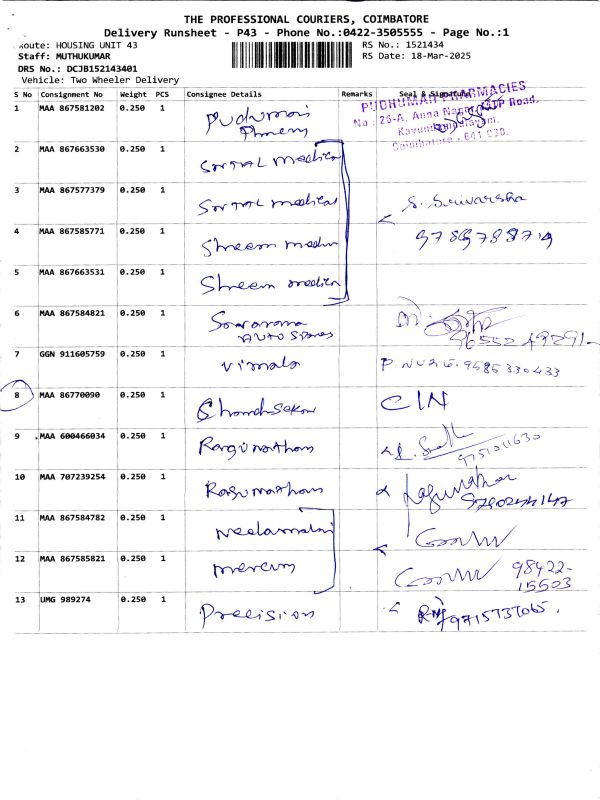 THE PROFESSIONAL COURIERS, COIMBATORE
Delivery Runsheet - P43 - Phone No.:0422-3505555 - Page No.:1
Route: HOUSING UNIT 43 RS No.: 1521434
Staff: MUTHUKUMAR RS Date: 18-Mar-2025
DRS No.: DCJB152143401
Vehicle: Two Wheeler Delivery
S No Consignment No Weight PCS Consignee Details Remarks Seal & Signature
PUDHUMAI PHARMACIES
1 MAA 867581202 0.250 1 Pudumai
No : 26-A, Anna Nagar, MTP Road,
Coimbatore - 641 030.
2 MAA 867663530 0.250 1 Medical
3 MAA 867577379 0.250 1 medical S. Srivarsha
4 MAA 867585771 0.250 1 Shreem
5 MAA 867663531 0.250 1 Shreem medical
6 MAA 867584821 0.250 1
AUTO Spares 96552 49291
7 GGN 911605759 0.250 1 Vimala 9585330433
8 MAA 86770090 0.250 1 CIN
9 .MAA 600466034 0.250 1 Ragunatham 9751011630
10 MAA 707239254 0.250 1 Ragunatham
11 MAA 867584782 0.250 1 Neelamalai
12 MAA 867585821 0.250 1 98422-
15503
13 UMG 989274 0.250 1 Precision 9715737065.